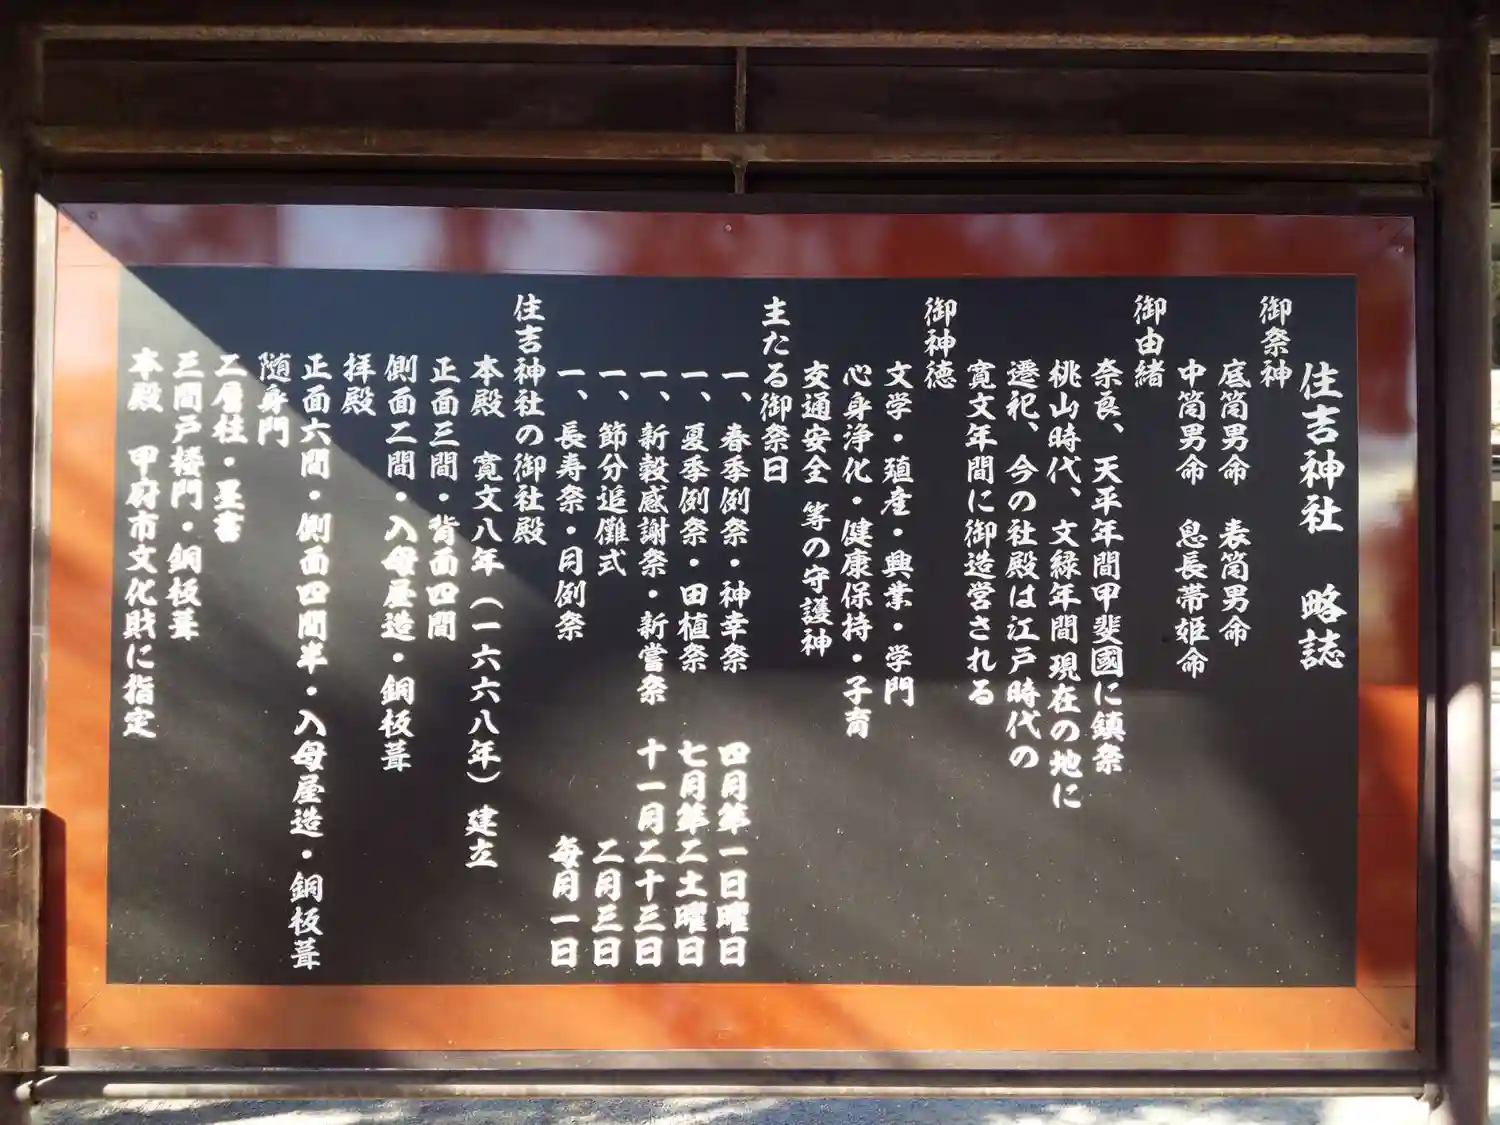 住吉神社　略誌
御祭神
底筒男命　表筒男命
中筒男命　息長帯姫命
御由緒
奈良、天平年間甲斐國に鎮祭
桃山時代、文緑年間現在の地に
遷祀、今の社殿は江戸時代の
寛文年間に御造営される
御神徳
文学・殖産・興業・学門
心身浄化・健康保持・子育
交通安全 等の守護神
主たる御祭日
一、春季例祭・神幸祭　四月第一日曜日
一、夏季例祭・田植祭　七月第二土曜日
一、新穀感謝祭・新嘗祭　十一月二十三日
一、節分追儺式　二月三日
一、長寿祭・月例祭　毎月一日
住吉神社の御社殿
本殿　寛文八年（一六六八年）建立
正面三間・背面四間
側面二間・入母屋造・銅板葺
拝殿
正面六間・側面四間半・入母屋造・銅板葺
随身門
二層柱・墨書
三間戸楼門・銅板葺
本殿　甲府市文化財に指定